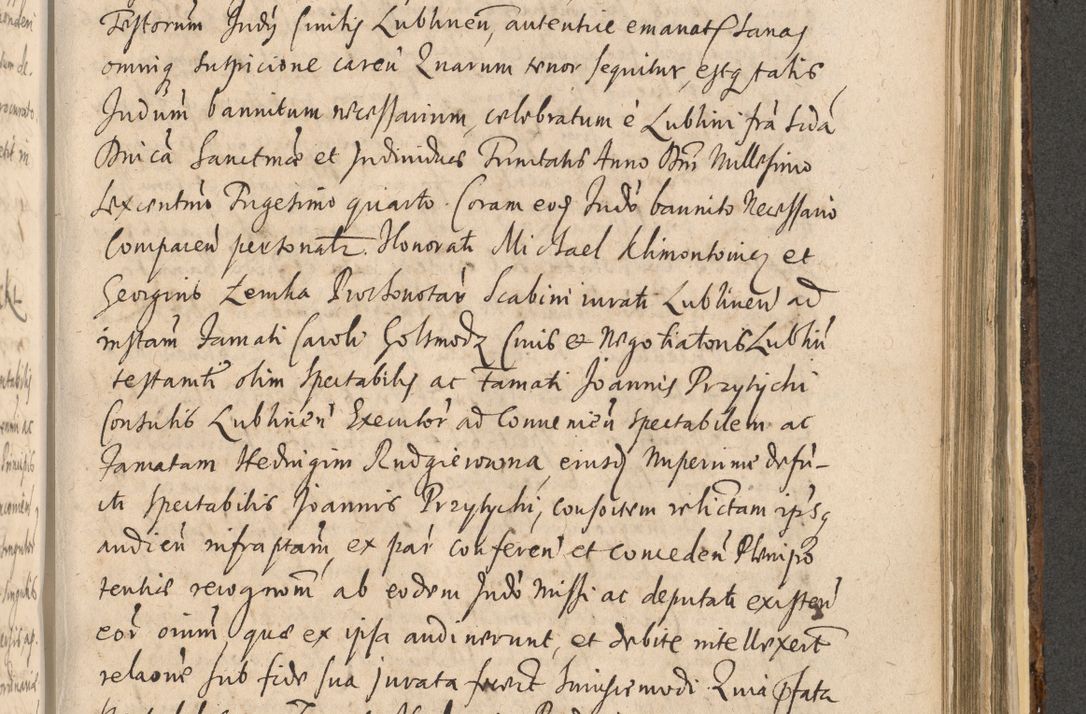 Testorum Judÿ Civilis Lublinen, autentice emanat Sanas
omniq suspicione caren Quarum tenor sequitur, estq talis
Judium bannitum necessarium, celebratum e Lublini fra 2da
Dnica Sanctmae et Individuae Trinitatis Anno Dni Millesimo
Sexcentmo Trigesimo quarto. Coram eoq Judo bannito Necessario
Comparen personatr. Honorati Michael Klimontowicz et
Georgius Lemka Prothonotar Scabini iurati Lublinen ad
instam Famati Caroli Goltmodz Civis et Negotiatoris Lublin
testamti olim Spectabilis ac Famati Joannis Przytycki
Consulis Lublinen Executor ad Convenien Spectabilem ac
Famatam Hedvigim Rudgierowna, eiusd nuperrime defu-
cti Spectabilis Joannis Przytycki, consortem relictam ipsq
audien infraptam, ex par conferen et conceden Plenipo
tentiae recognom ab eodem Judo missi ac deputati existen
eor onium quae ex ipsa audiverunt, et debite intellexert
relaone sub fide sua jurata fecert huiusmodi. Quia pfata